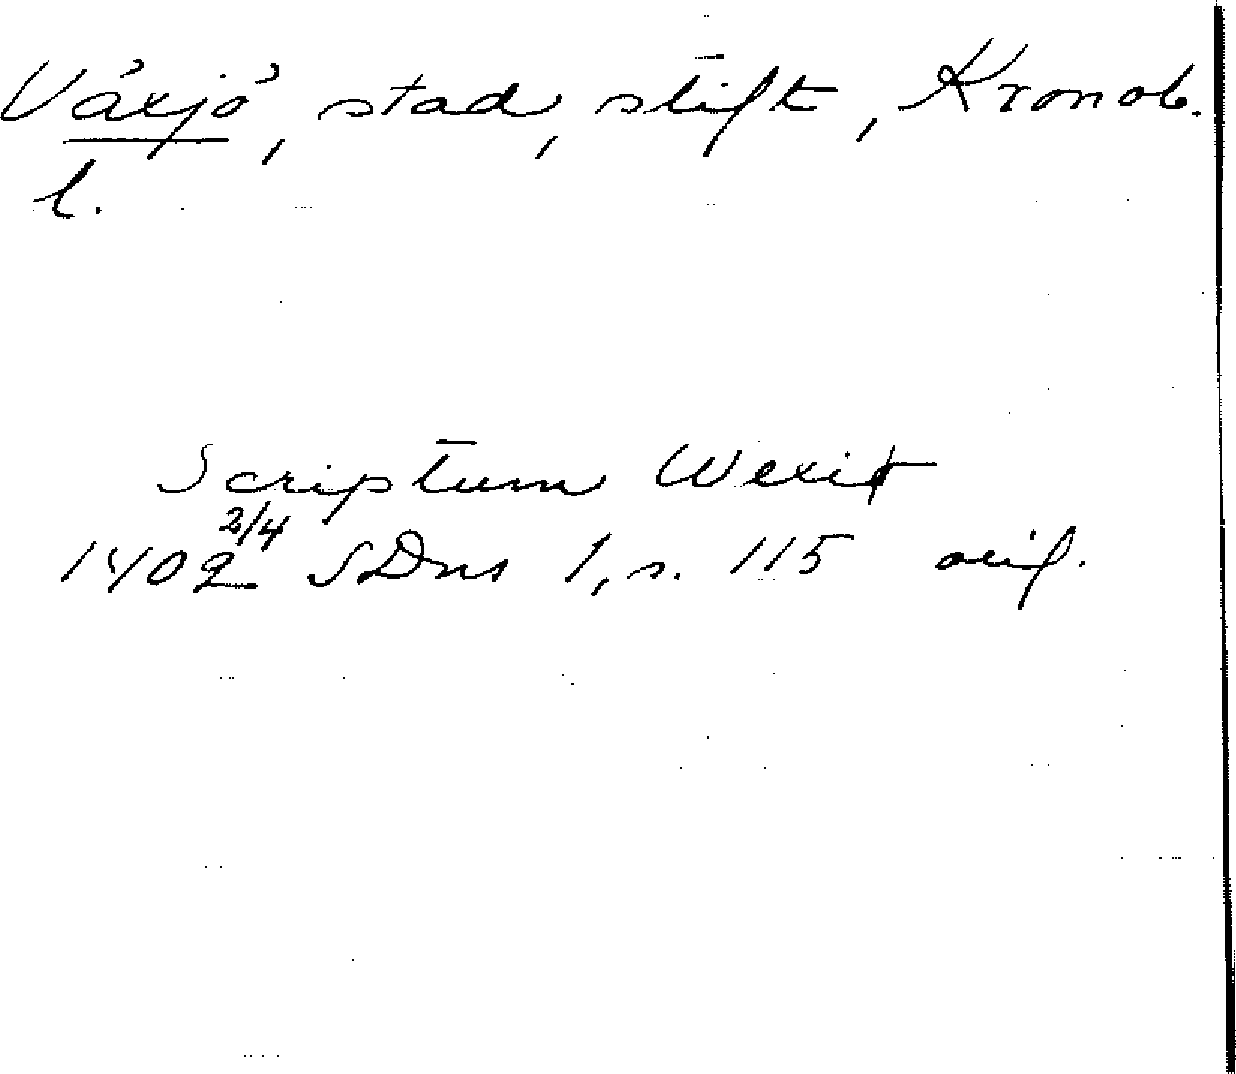 Växjö, stad, stift, Kronob.
l.
Scriptum Wexiø
1402 2/4 SDns 1, s. 115 orig.